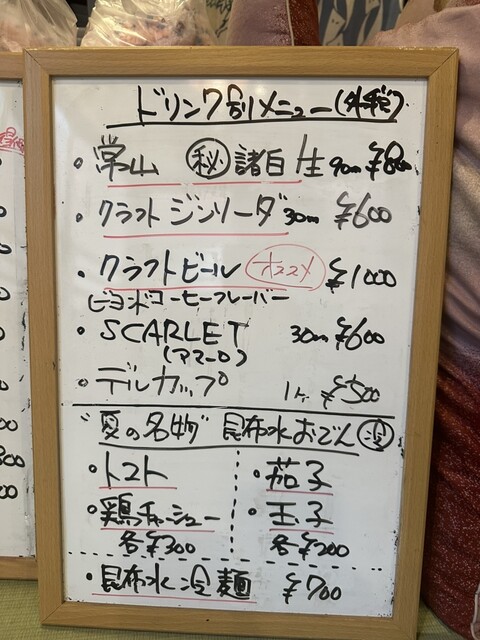 ドリンク別メニュー(外税)
・常山 ㊙諸白 生 90ml ¥800
・クラフトジンソーダ 30ml ¥600
・クラフトビール オススメ ¥1000
ビヨンドコーヒーフレーバー
・SCARLET 30ml ¥600
(アマーロ)
・デルカップ 1ヶ ¥500
"夏の名物" 昆布水おでん 冷
・トマト ・茄子
・鶏チャーシュー ・玉子
各¥300 各¥200
・昆布水冷麺 ¥700